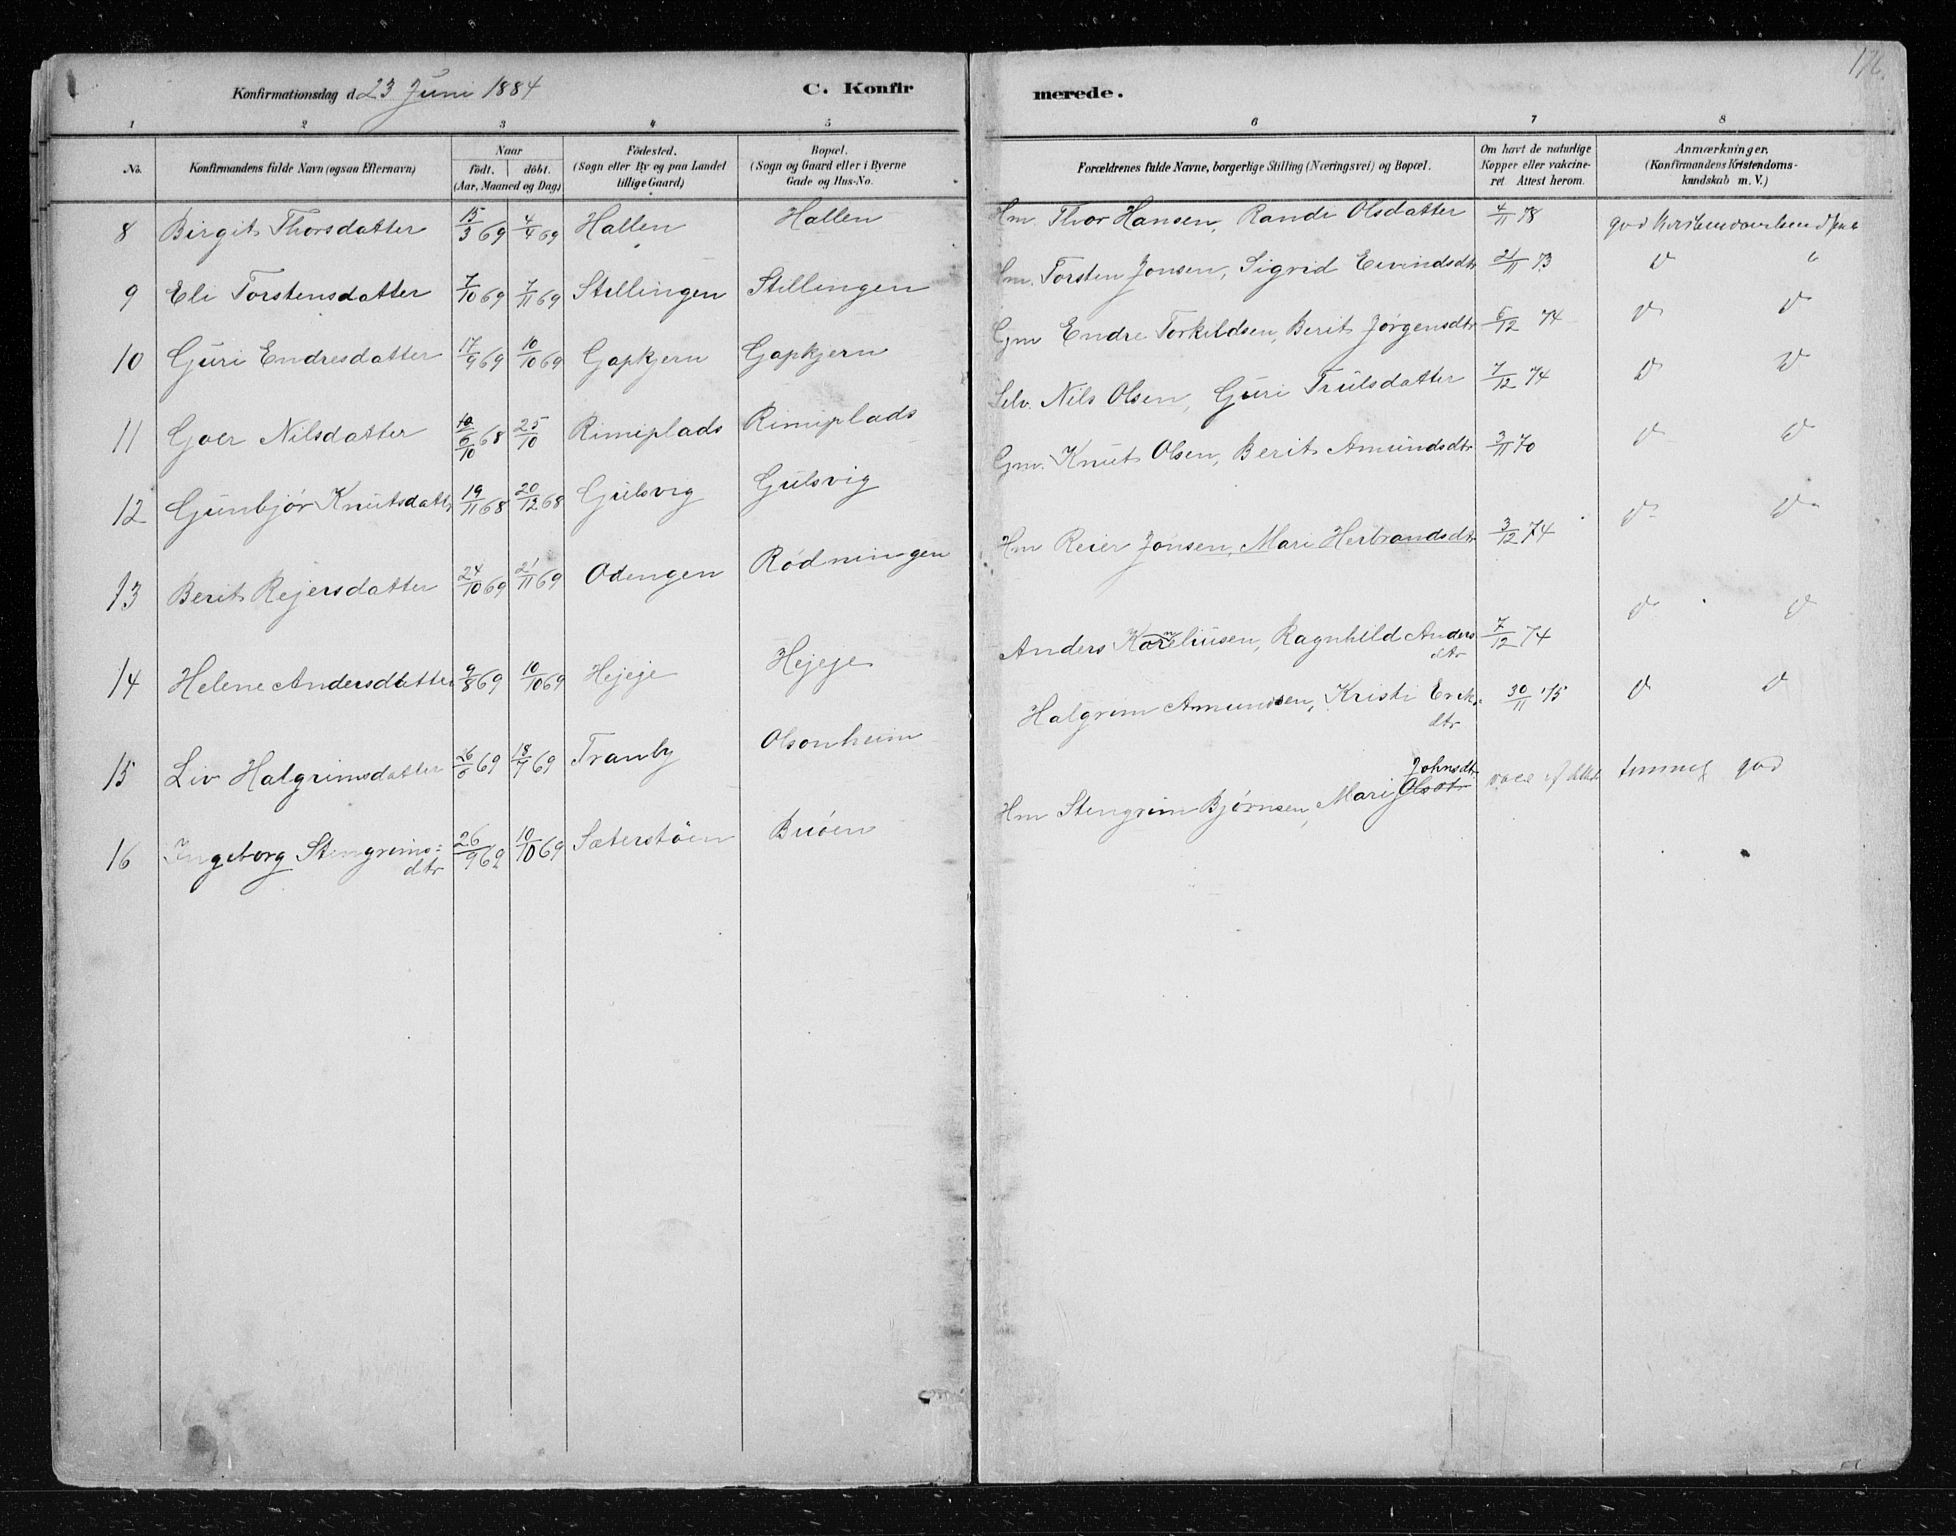 Konfirmationsdag d. 23 Juni 1884 C. Konfirmerede. 176.
1 2 3 4 5 6 7 8
No. Konfirmandens fulde Navn (ogsaa Efternavn) Naar født. døbt. (Aar, Maaned og Dag) Fødested. (Sogn eller By og paa Landet tillige Gaard) Bopæl. (Sogn og Gaard eller i Byerne Gade og Hus-No. Forældrenes fulde Navne, borgerlige Stilling (Næringsvei) og Bopæl. Om havt de naturlige Kopper eller vakcineret Attest herom. Anmærkninger. (Konfirmandens Kristendomskundskab m. V.)
8 Birgit Thorsdatter 15/3 69 4/4 69 Hallen Hallen Hm. Thor Hansen, Randi Olsdatter 4/11 78 god
9 Eli Torstensdatter 7/10 69 7/11 69 Stillingen Stillingen Hm. Torsten Jonsen, Sigrid Eivindsdtr 21/11 73 D "
10 Guri Endresdatter 17/9 69 10/10 69 Gapkjern Gapkjern Gm Endre Torkildsen, Berit Jørgensdtr 5/12 74 D D
11 Goer Nilsdatter 25/10 Rimiplads Rimiplads Selv. Nils Olsen, Guri Trulsdatter 7/12 74 D D
12 Gunbjør Knutsdatt 19/11 68 20/12 68 Gulsvig Gulsvig Gm. Knut Olsen, Berit Amundsdtr 3/11 70 D D
13 Berit Rejersdatter 24/10 69 21/11 69 Odengen Rødningen Hm Reier Jonsen, Mari Herbrandsdtr 3/12 74 D D
14 Helene Andersdatter 9/8 69 10/10 69 Hejeje Hejeje Anders Korneliusen, Ragnhild Andersdtr 7/12 74 D D
15 Liv Halgrimsdatter 26/5 69 18/7 69 Tranby Olsonheim Halgrim Amundsen, Kristi Erik.dtr 30/11 75 D D
16 Ingeborg Stengrims=dtr 26/9 69 10/10 69 Sæterstøen Bruøen Hm Stengrim Bjørnsen, Mari Olsdtr Johnsdtr god